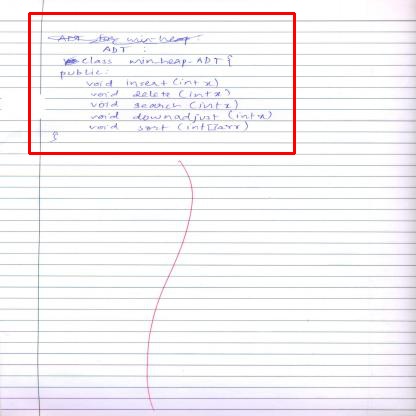 ADT for min heap:
ADT :
class min-heap-ADT {
public:
void insert (int x)
void delete (int x)
void search (int x)
void downadjust (int x)
void sort (int[] arr)
}